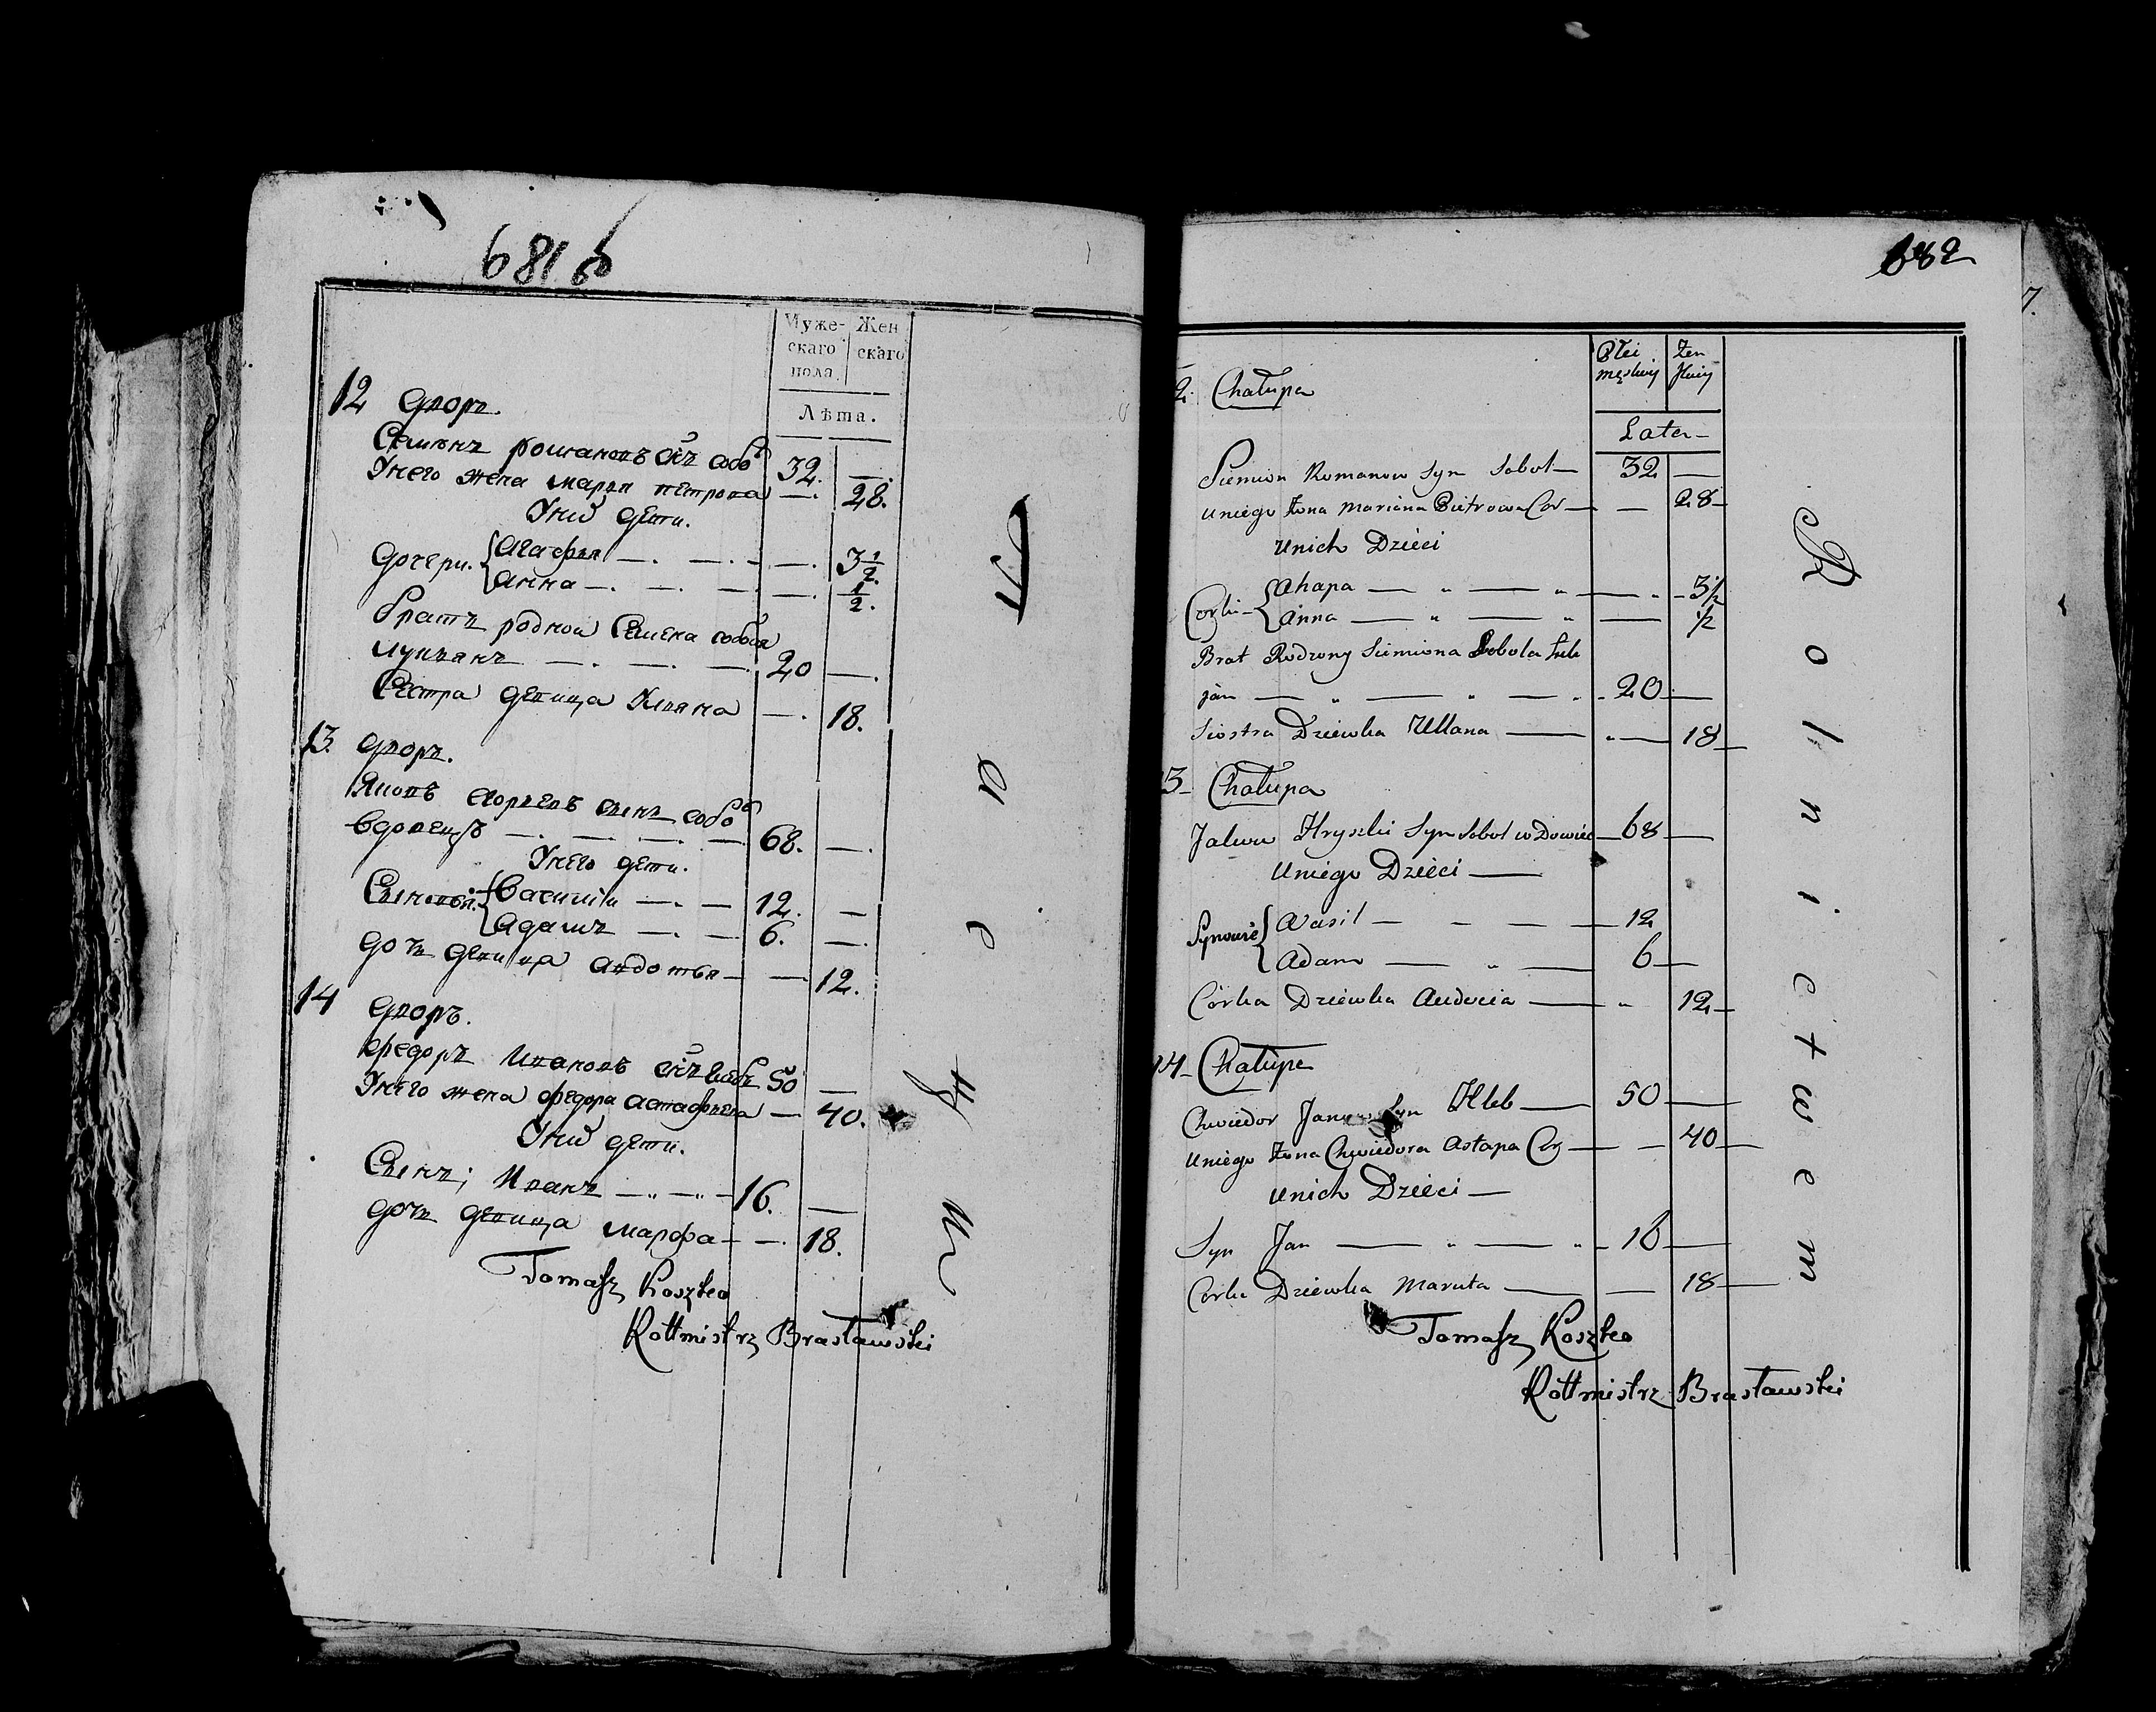 681 б
Муже-
скаго
пола.
Жен
скаго
Лѣта.
12 Дворъ.
Семенъ романовъ снъ собо 32. —.
Унего жена марья петрова —. 28.
Унихъ дети.
Дочери. { Агафья —. —. — —. 3 1/2.
анна —. —. —. —. 1/2.
братъ родной Семена собола
лукьянъ —. —. — 20 —.
Сестра девица Ульяна —. 18.
13. Дворъ.
Яковъ сынъ собо
вдовецъ —. —. —. — 68. —.
Унего дети.
Сыновья. { Василiй —. — 12. —
адамъ —. — 6. —.
дочь девица авдотья — — 12.
14 Дворъ.
федоръ Ивановъ снъ 50 —
Унего жена федора астафьева — 40.
Унихъ дети.
Сынъ; Иванъ — „ — „ — 16. —
дочь девица марфа — —. 18.
Tomasz Koszko
Rottmistrz Brasławski
682
7.
Płci
męskiey
Żen
skiey
Lata —
2. Chałupa
Siemion Romanow Syn Soboł — 32 —
uniego Żona Mariana Pietrowa Cor — — 28 —
unich Dzieci
Corki — { Ahapa — „ — „ — „ — 3 1/2
Anna — „ — „ — 1/2
Brat Rodzony Siemiona Sobola Łuk
jan — „ — „ — „ — 20 —
Siostra Dziewka Ullana — „ — 18 —
3 — Chałupa
Jakow Hryszki Syn Soboł wDowiec — 68 —
uniego Dzieci —
Synowie { Wasil — — — — 12
Adam — „ — 6 —
Córka Dziewka Audocia — „ 12 —
14 — Chałupa
Chwiedor Syn Hleb — 50 —
uniego Żona Chwiedora Astapa Cor — — 40 —
unich Dzieci —
Syn Jan — „ — „ — 16 —
Corka Dziewka Maruta — — 18 —
Tomasz Koszko
Rottmistrz Brasławski
Rolnictwem